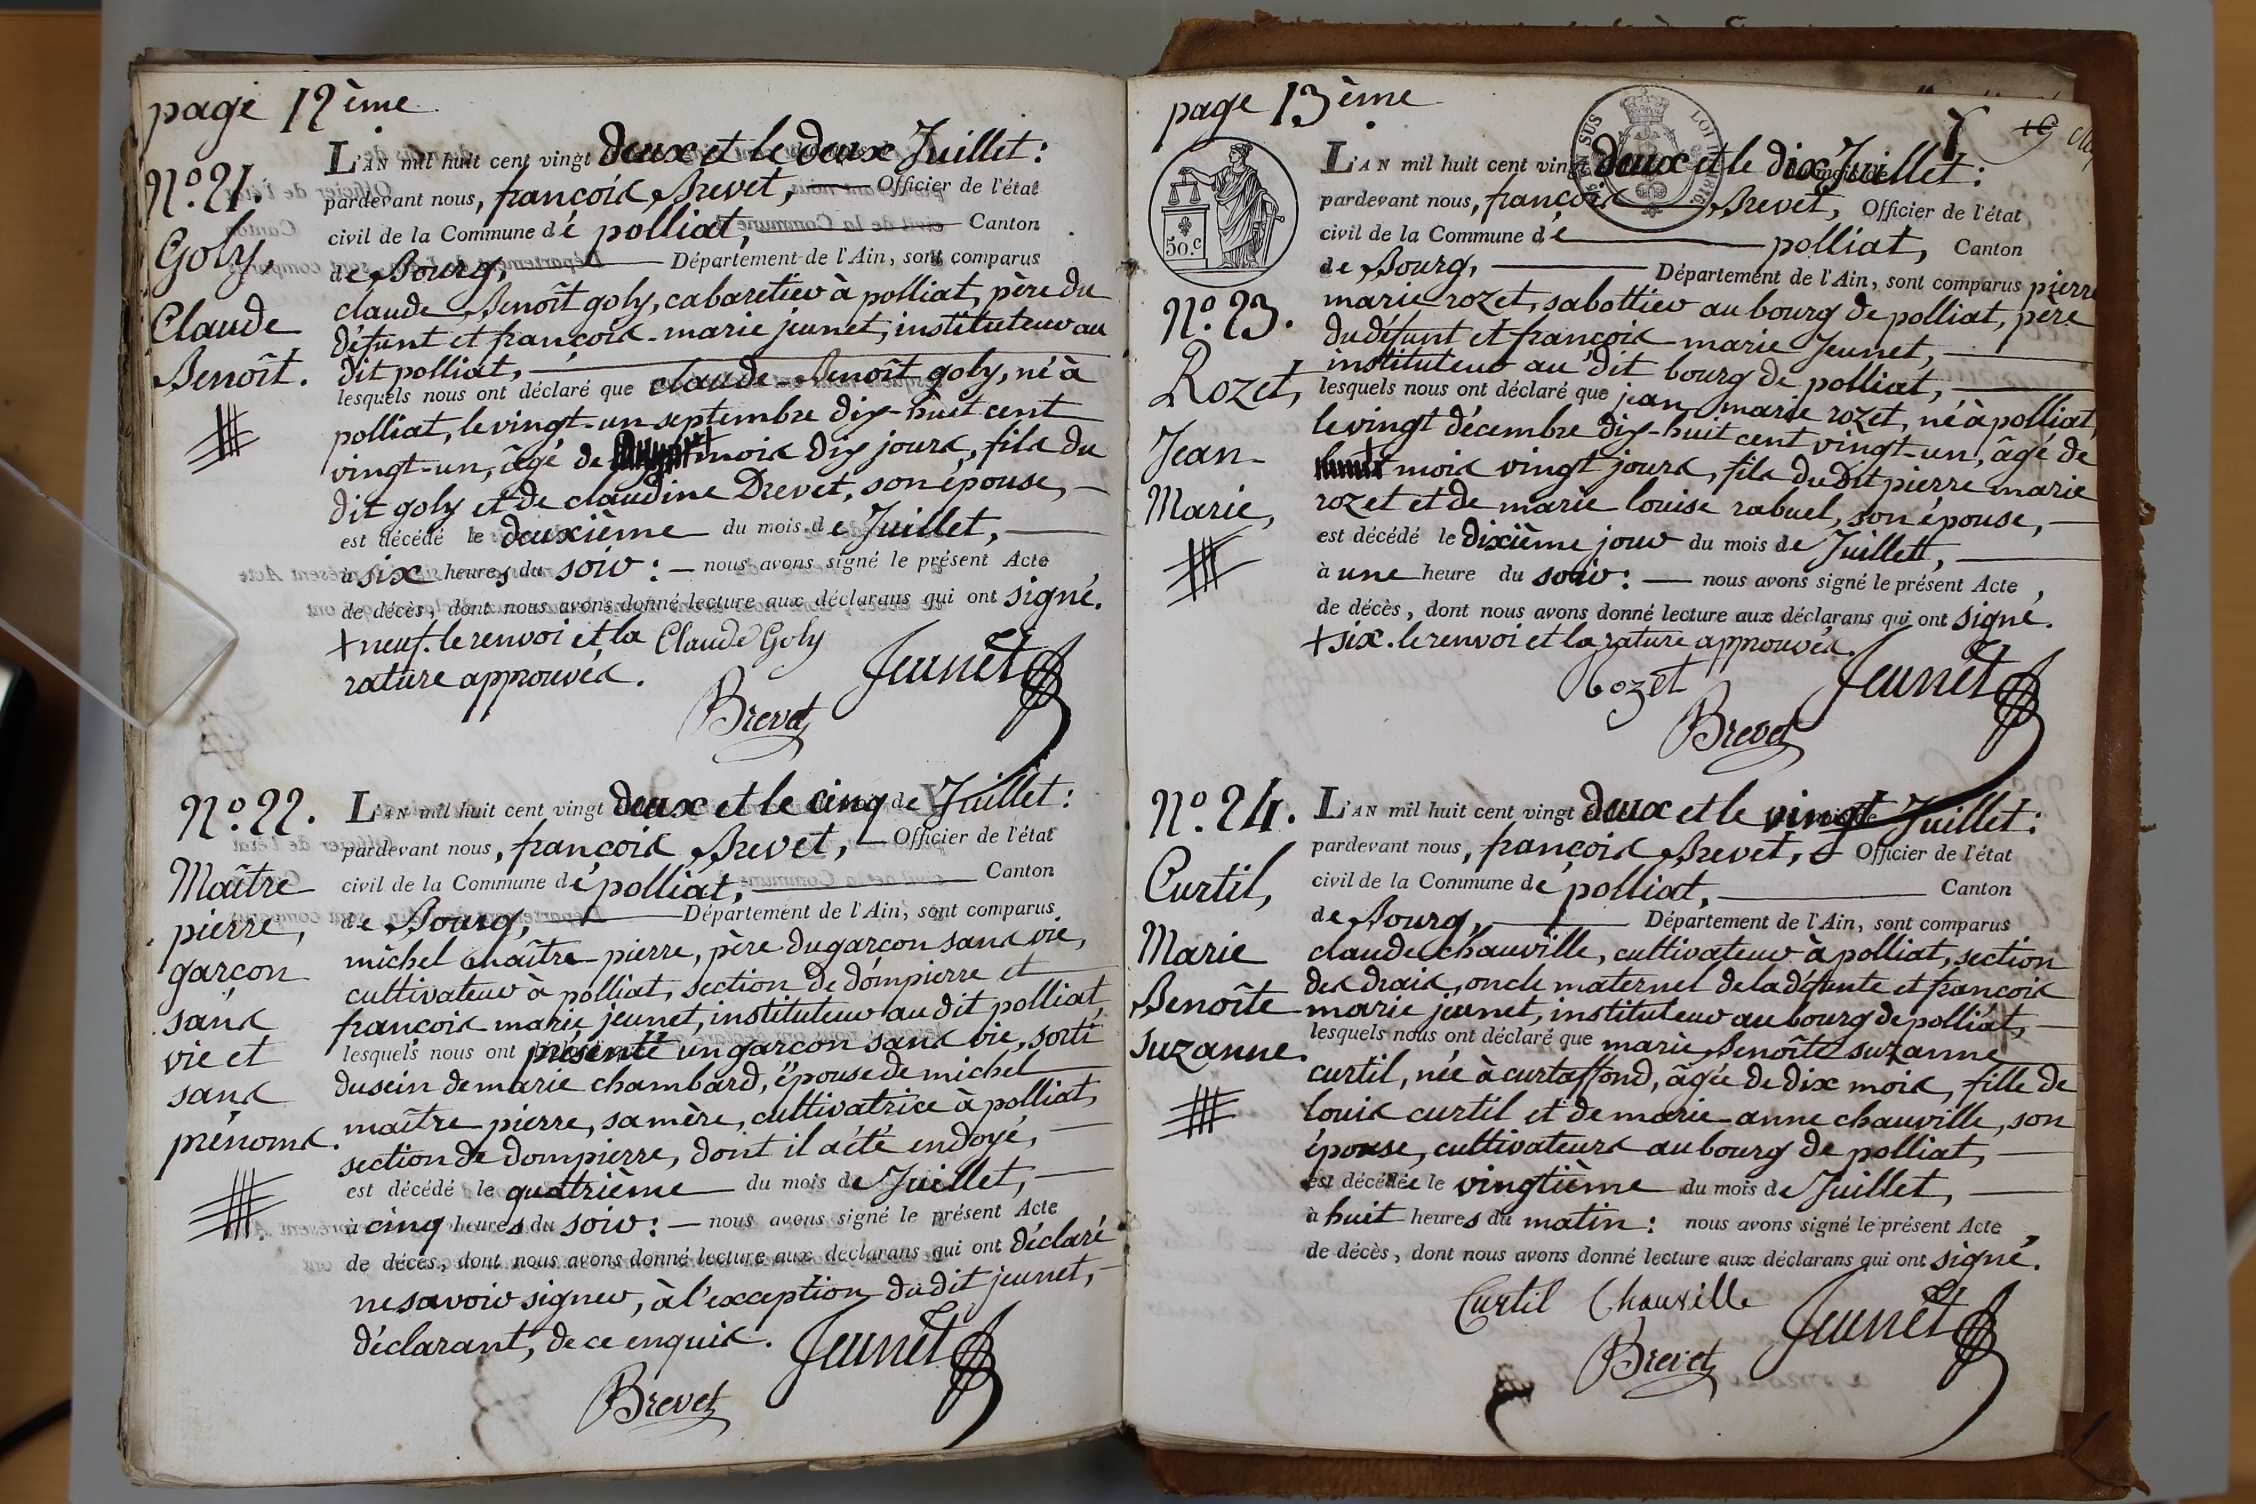 page 12ème
N.º 21.
Goly,
Claude
Benoît.
L'AN mil huit cent vingt deux et le deux Juillet:
pardevant nous, françois Brevet, Officier de l'état
civil de la Commune de polliat, Canton
de Bourg, Département de l'Ain, sont comparus
claude Benoît goly, cabaretier à polliat, père du
défunt et françois-marie jeunet, instituteur au
dit polliat,
lesquels nous ont déclaré que claude-Benoît goly, né à
polliat, le vingt-un septembre dix-huit cent
vingt-un, âgé de + mois dix jours, fils du
dit goly et de claudine Drevet, son épouse,
est décédé le deuxième du mois de Juillet,
à six heures du soir: nous avons signé le présent Acte
de décès, dont nous avons donné lecture aux déclarans qui ont signé.
+ neuf. le renvoi et la Claude Goly
rature approuvés. Jeunet
Brevet
N.º 22.
Maître
pierre,
garçon
sans
vie et
sans
prénoms.
L'AN mil huit cent vingt deux et le cinq de Juillet:
pardevant nous, françois Brevet, Officier de l'état
civil de la Commune de polliat, Canton
de Bourg, Département de l'Ain, sont comparus
michel maître-pierre, père du garçon sans vie,
cultivateur à polliat, section de dompierre et
françois marie jeunet, instituteur au dit polliat,
lesquels nous ont présenté un garçon sans vie, sorti
du sein de marie chambard, épouse de michel
maître pierre, sa mère, cultivatrice à polliat,
section de dompierre, dont il a été endoyé,
est décédé le quatrième du mois de Juillet,
à cinq heures du soir: nous avons signé le présent Acte
de décès, dont nous avons donné lecture aux déclarans qui ont déclaré
ne savoir signer, à l'exception du dit jeunet,
déclarant, de ce enquis. Jeunet
Brevet
page 13ème
50.c
LOI 1816
N.º 23.
Rozet,
Jean-
Marie,
L'AN mil huit cent vingt deux et le dix Juillet:
pardevant nous, françois Brevet, Officier de l'état
civil de la Commune de polliat, Canton
de Bourg, Département de l'Ain, sont comparus pierre
marie rozet, sabottier au bourg de polliat, père
du défunt et françois-marie Jeunet,
instituteur au dit bourg de polliat,
lesquels nous ont déclaré que jean marie rozet, né à polliat,
le vingt décembre dix-huit cent vingt-un, âgé de
+ mois vingt jours, fils du dit pierre marie
rozet et de marie louise rabuel, son épouse,
est décédé le dixième jour du mois de Juillett,
à une heure du soir: nous avons signé le présent Acte
de décès, dont nous avons donné lecture aux déclarans qui ont signé.
+ six. le renvoi et la rature approuvés.
Rozet Jeunet
Brevet
N.º 24.
Curtil,
Marie
Benoîte
Suzanne.
L'AN mil huit cent vingt deux et le vingt Juillet:
pardevant nous, françois Brevet, Officier de l'état
civil de la Commune de polliat, Canton
de Bourg, Département de l'Ain, sont comparus
claude chauville, cultivateur à polliat, section
des drais, oncle maternel de la défunte et françois
marie jeunet, instituteur au bourg de polliat,
lesquels nous ont déclaré que marie Benoîte suzanne
curtil, née à curtaffond, âgée de dix mois, fille de
louis curtil et de marie-anne chauville, son
épouse, cultivateurs au bourg de polliat,
est décédée le vingtième du mois de Juillet,
à huit heures du matin: nous avons signé le présent Acte
de décès, dont nous avons donné lecture aux déclarans qui ont signé.
Curtil Chauville Jeunet
Brevet